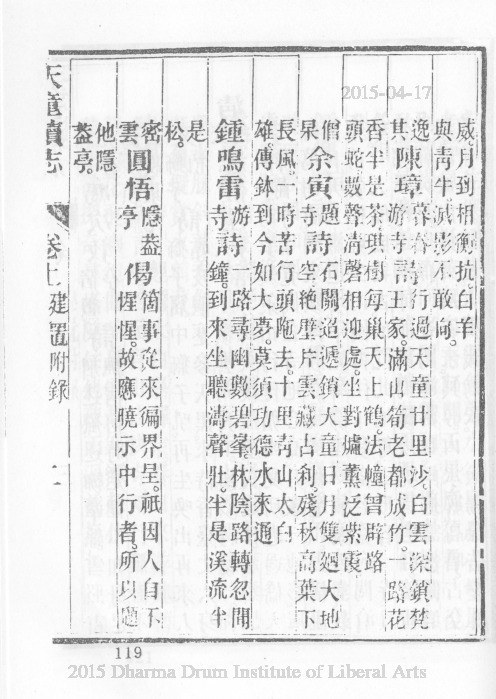 2015-04-17
威月到相衡抗白羊
與靑牛滅影不敢向。
逸 陳璋 暮春 詩 行過天童廿里沙。白雲深鎖梵
其 游寺 王家。滿山筍老都成竹。一路花
香半是茶。琪樹每巢天上鶴。法幢曾辟路
頭蛇。數聲淸磬相迎處。坐對爐薰泛紫霞
僧 余寅 題詩 石關迢遞鎖天童。日月雙廻大地
杲 寺 空。絶壁片雲藏古刹。殘秋高葉下
長風。時苦行頭陁去。十里靑山太白
雄。傳鉢到今如大夢。莫須功德水來通
鍾鳴雷 游詩 一路尋幽數碧峯。林陰路轉忽聞
寺 鐘。到來坐聽濤聲壯。半是溪流半
是
松。
密 圓悟 隱葢 偈 箇事從來徧界呈。祇因人自不
雲 亭 惺惺。故應曉示中行者。所以題
他隱
葢亭。
天童續志 卷上 建置附錄
119
2015 Dharma Drum Institute of Liberal Arts